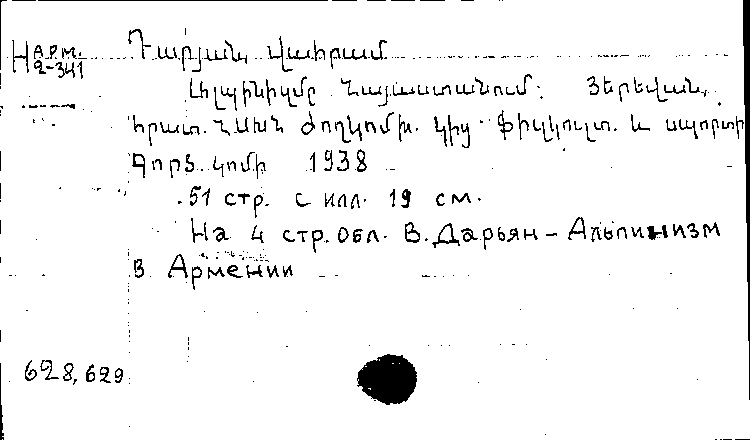 Н АРМ.
2-341
Դարյան, Վահրամ
Ալպինիզմը Հայաստանում: Յերեվան,
հրատ. ՀՍԽՀ Ժողկոմխ. կից Ֆիզկուլտ. և սպորտի
Գործ. կոմի 1938
51 стр. с илл. 19 см.
На 4 стр. обл. В. Дарьян - Альпинизм
в Армении
628,629